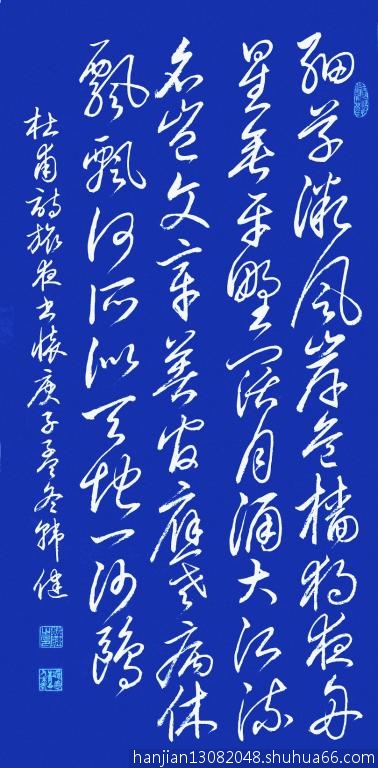 細草微風岸危檣獨夜舟
星垂平野闊月涌大江流
名豈文章著官應老病休
飄飄何所似天地一沙鷗
杜甫詩旅夜書懷庚子孟冬韓健
hanjian13082048.shuhua66.com